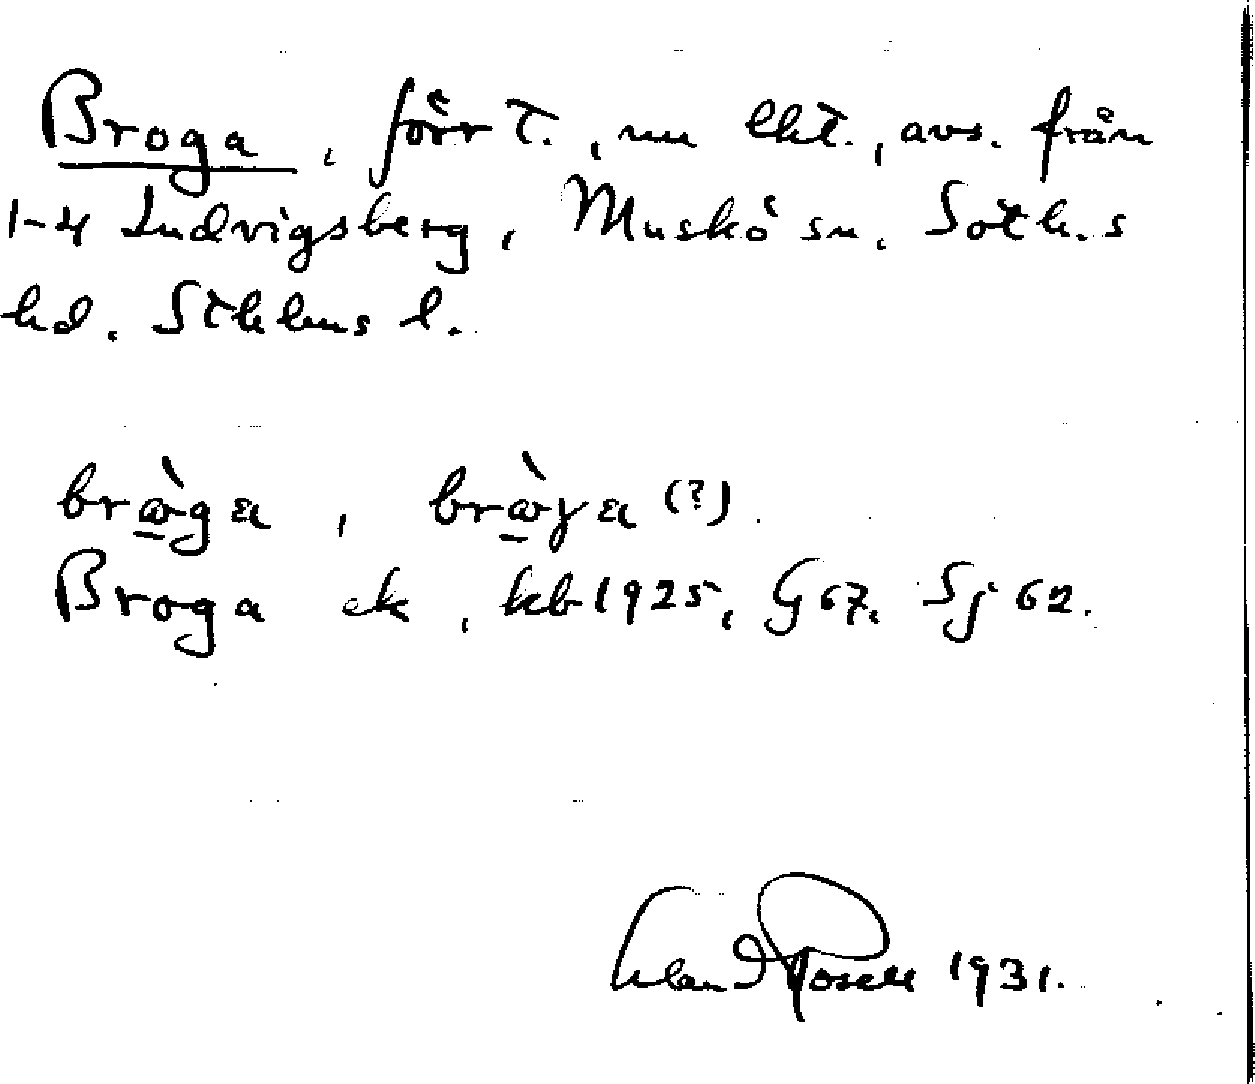 Broga, förr T., nu lht., avs. från
1-4 Ludvigsberg, Muskö sn, Soth.s
hd. Sthlms l.
brå̱̀ga, brå̱̀γa (?).
Broga ek, kb 1925, G 67. Sj 62.
Rosell 1931.